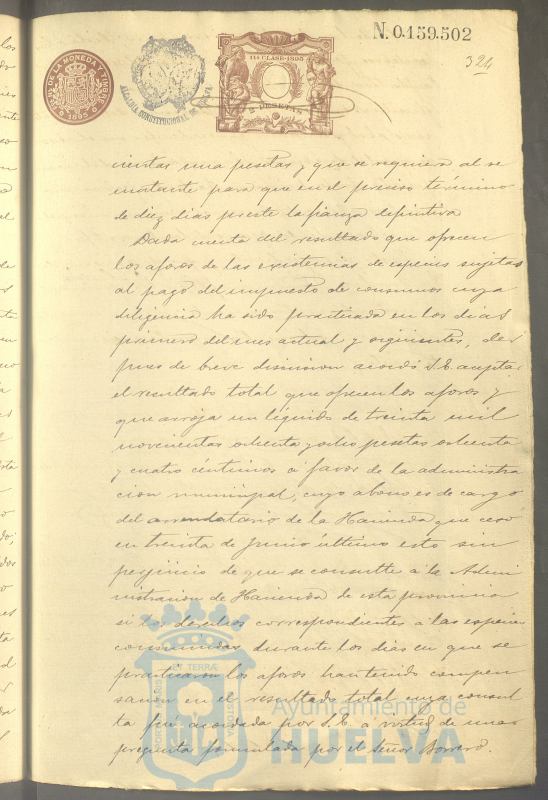 N. 0.159.502
324
11ª CLASE - 1895
2 PESETAS
DE LA MONEDA Y TIMBRE
1895
ALCALDIA CONSTITUCIONAL DE
cientas una pesetas, y que se requiera al se
matante para que en el preciso término
de diez dias preste la fianza definitiva
Dada cuenta del resultado que ofrecen
los aforos de las existencias de especies sujetas
al pago del impuesto de consumos cuya
diligencia ha sido practicada en los dias
primero del mes actual y siguientes, des
pues de breve discusion acordó S.E. aceptar
el resultado total que ofrecen los aforos y
que arroja un líquido de treinta mil
novecientas ochenta y ocho pesetas ochenta
y cuatro céntimos á favor de la administra
cion municipal, cuyo abono es de cargo
del arrendatario de la Hacienda que cesó
en treinta de Junio último esto sin
perjuicio de que se consulte á la Admi
nistracion de Hacienda de esta provincia
si los derechos correspondientes á las especies
consumidas durante los dias en que se
practicaron los aforos han tenido compen
sacion en el resultado total cuya consul
ta fué acordada por S.E. á virtud de una
pregunta formulada por el Señor Borrero.
PORTUS MARIS ET TERRÆ CUSTODIA
Ayuntamiento de
HUELVA